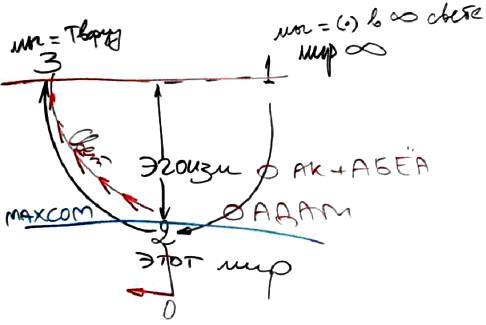 мы = Творцу
мы = (•) в ∞ свете
мир ∞
3
1
свет
эгоизм
АК + АБЕЯ
МАХСОМ
АДАМ
2
этот мир
0